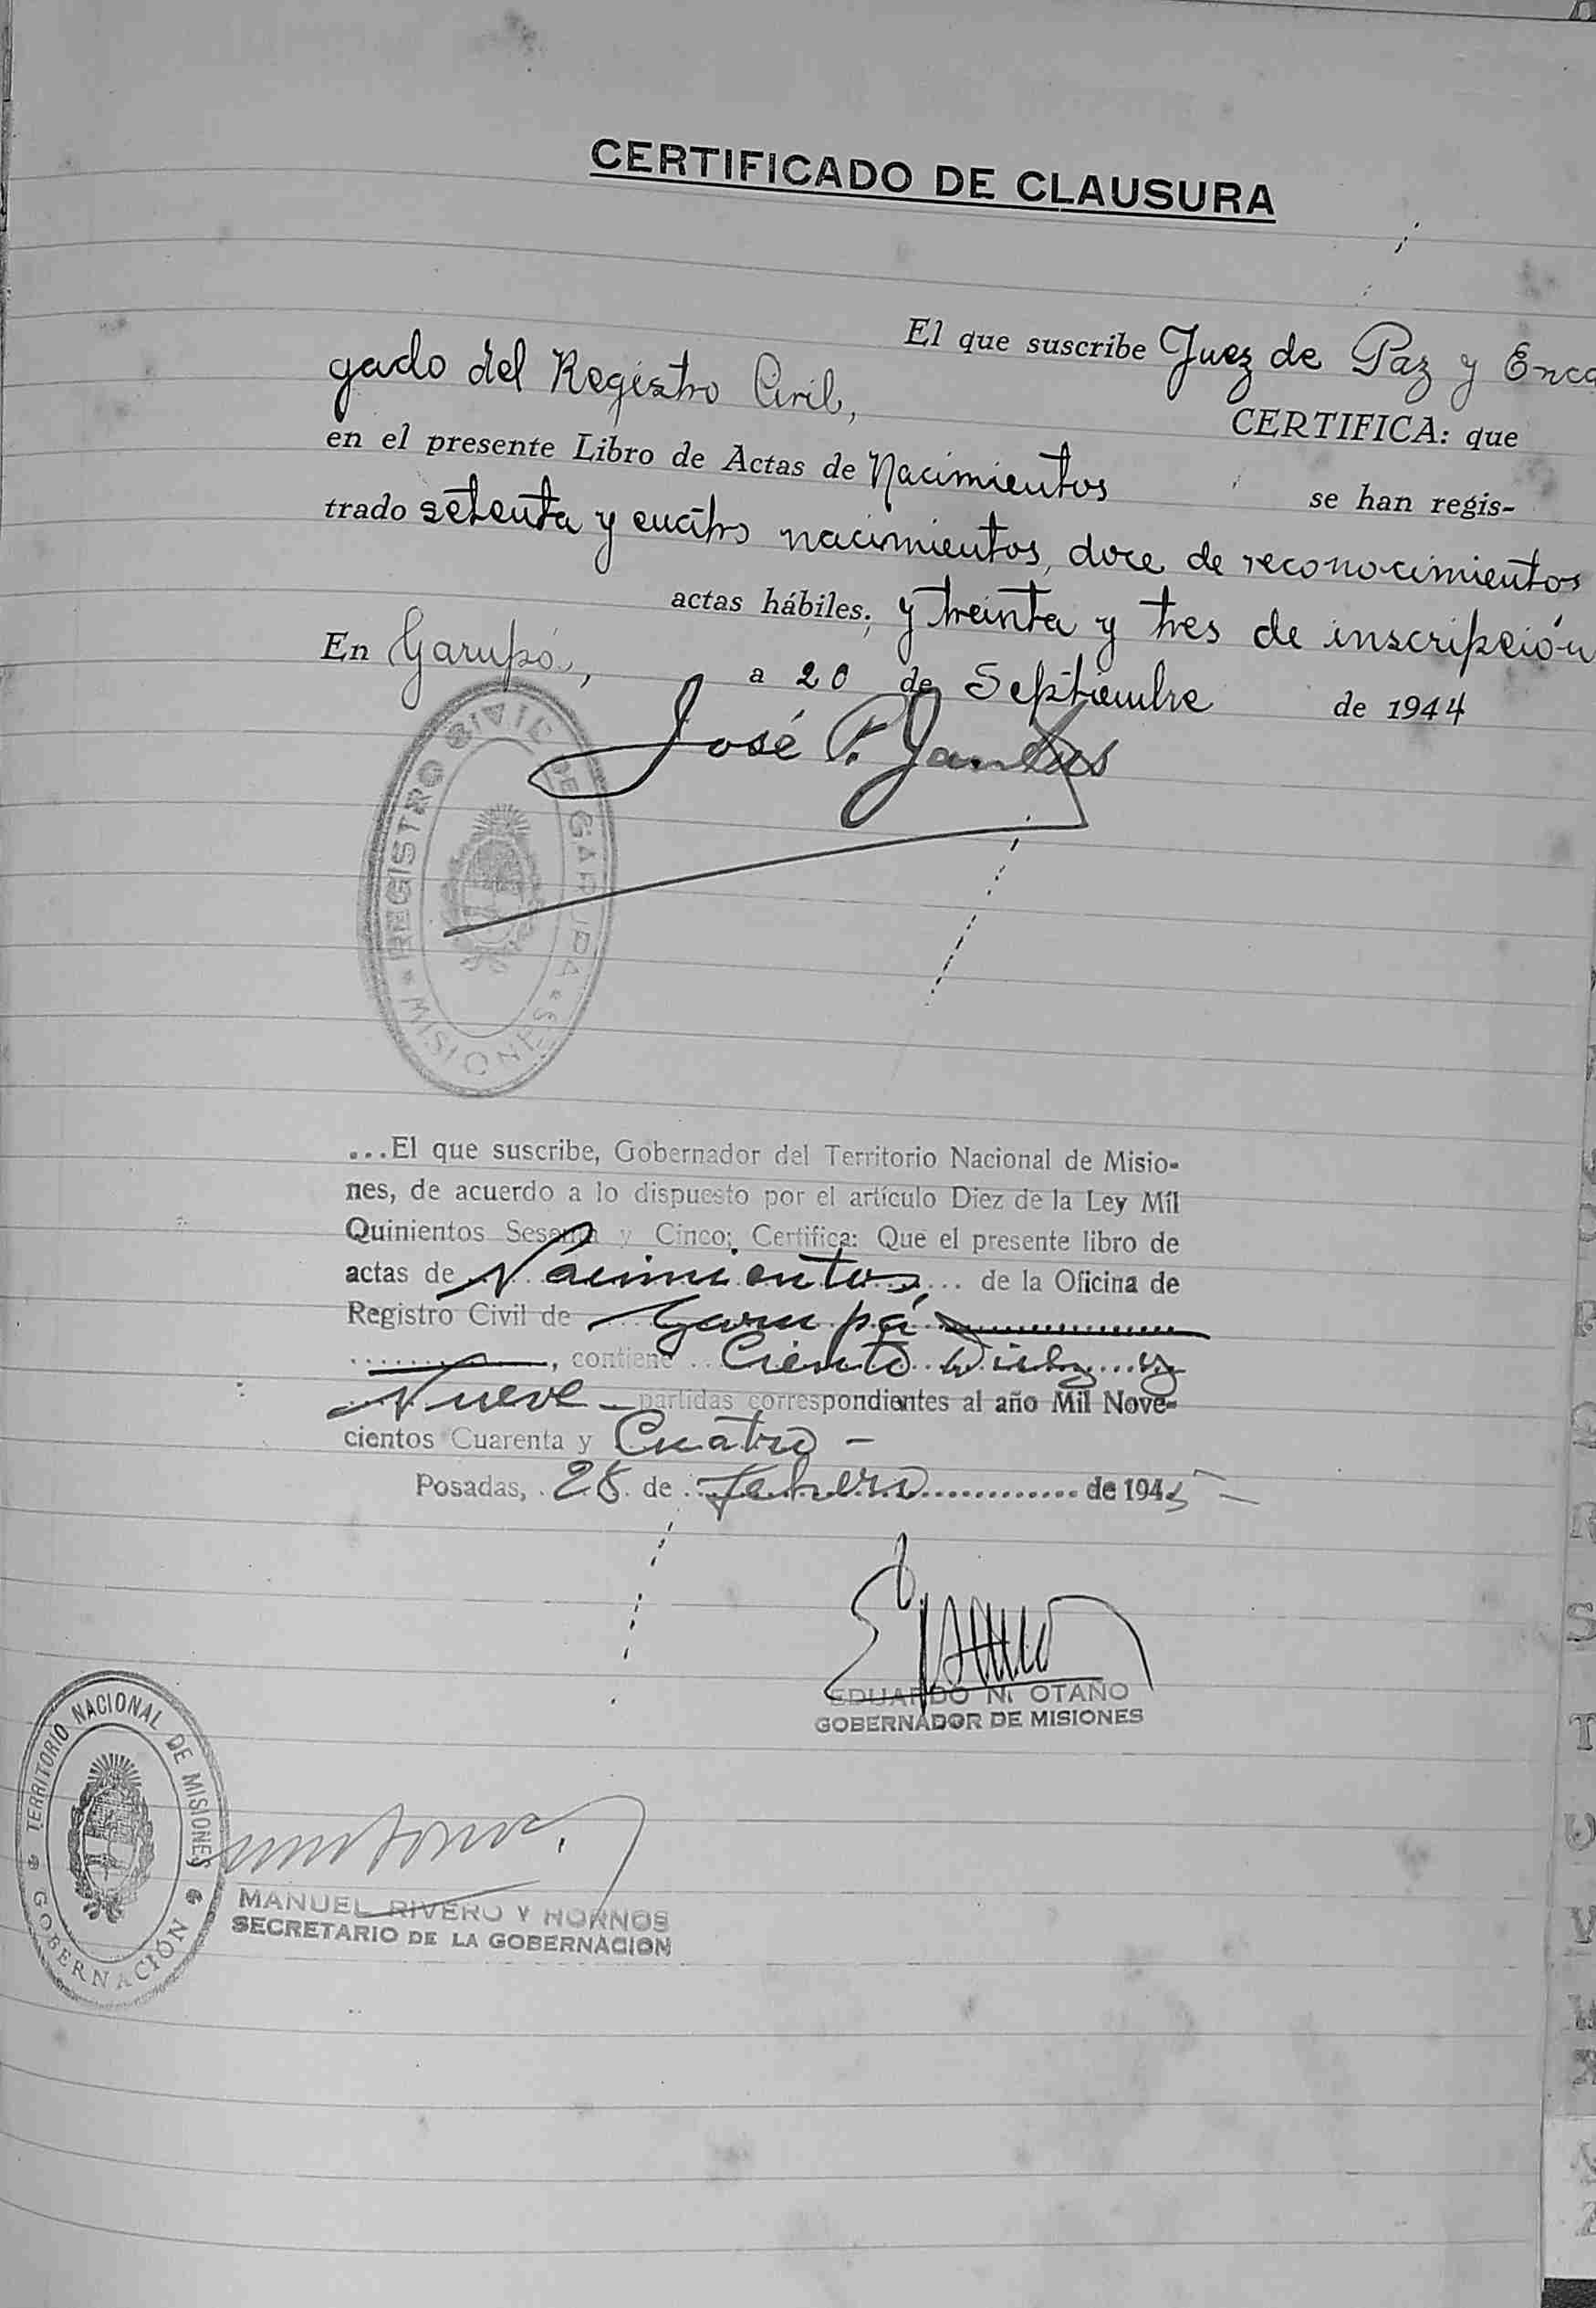 CERTIFICADO DE CLAUSURA
El que suscribe Juez de Paz y Enca
gado del Registro Civil,
CERTIFICA: que
en el presente Libro de Actas de Nacimientos se han regis-
trado setenta y cuatro nacimientos, doce de reconocimientos
actas hábiles; y treinta y tres de inscripción
En Garupá, a 20 de Septiembre de 1944
José P.
REGISTRO CIVIL DE GARUPA
MISIONES
...El que suscribe, Gobernador del Territorio Nacional de Misio-
nes, de acuerdo a lo dispuesto por el artículo Diez de la Ley Mil
Quinientos Sesenta y Cinco; Certifica: Que el presente libro de
actas de Nacimientos de la Oficina de
Registro Civil de Garupá
, contiene Ciento Diez y
Nueve partidas correspondientes al año Mil Nove-
cientos Cuarenta y Cuatro -
Posadas, 28 de Febrero de 1945
EDUARDO N. OTAÑO
GOBERNADOR DE MISIONES
TERRITORIO NACIONAL DE MISIONES
GOBERNACIÓN
MANUEL RIVERO Y HORNOS
SECRETARIO DE LA GOBERNACION
S
T
U
V
W
X
Z